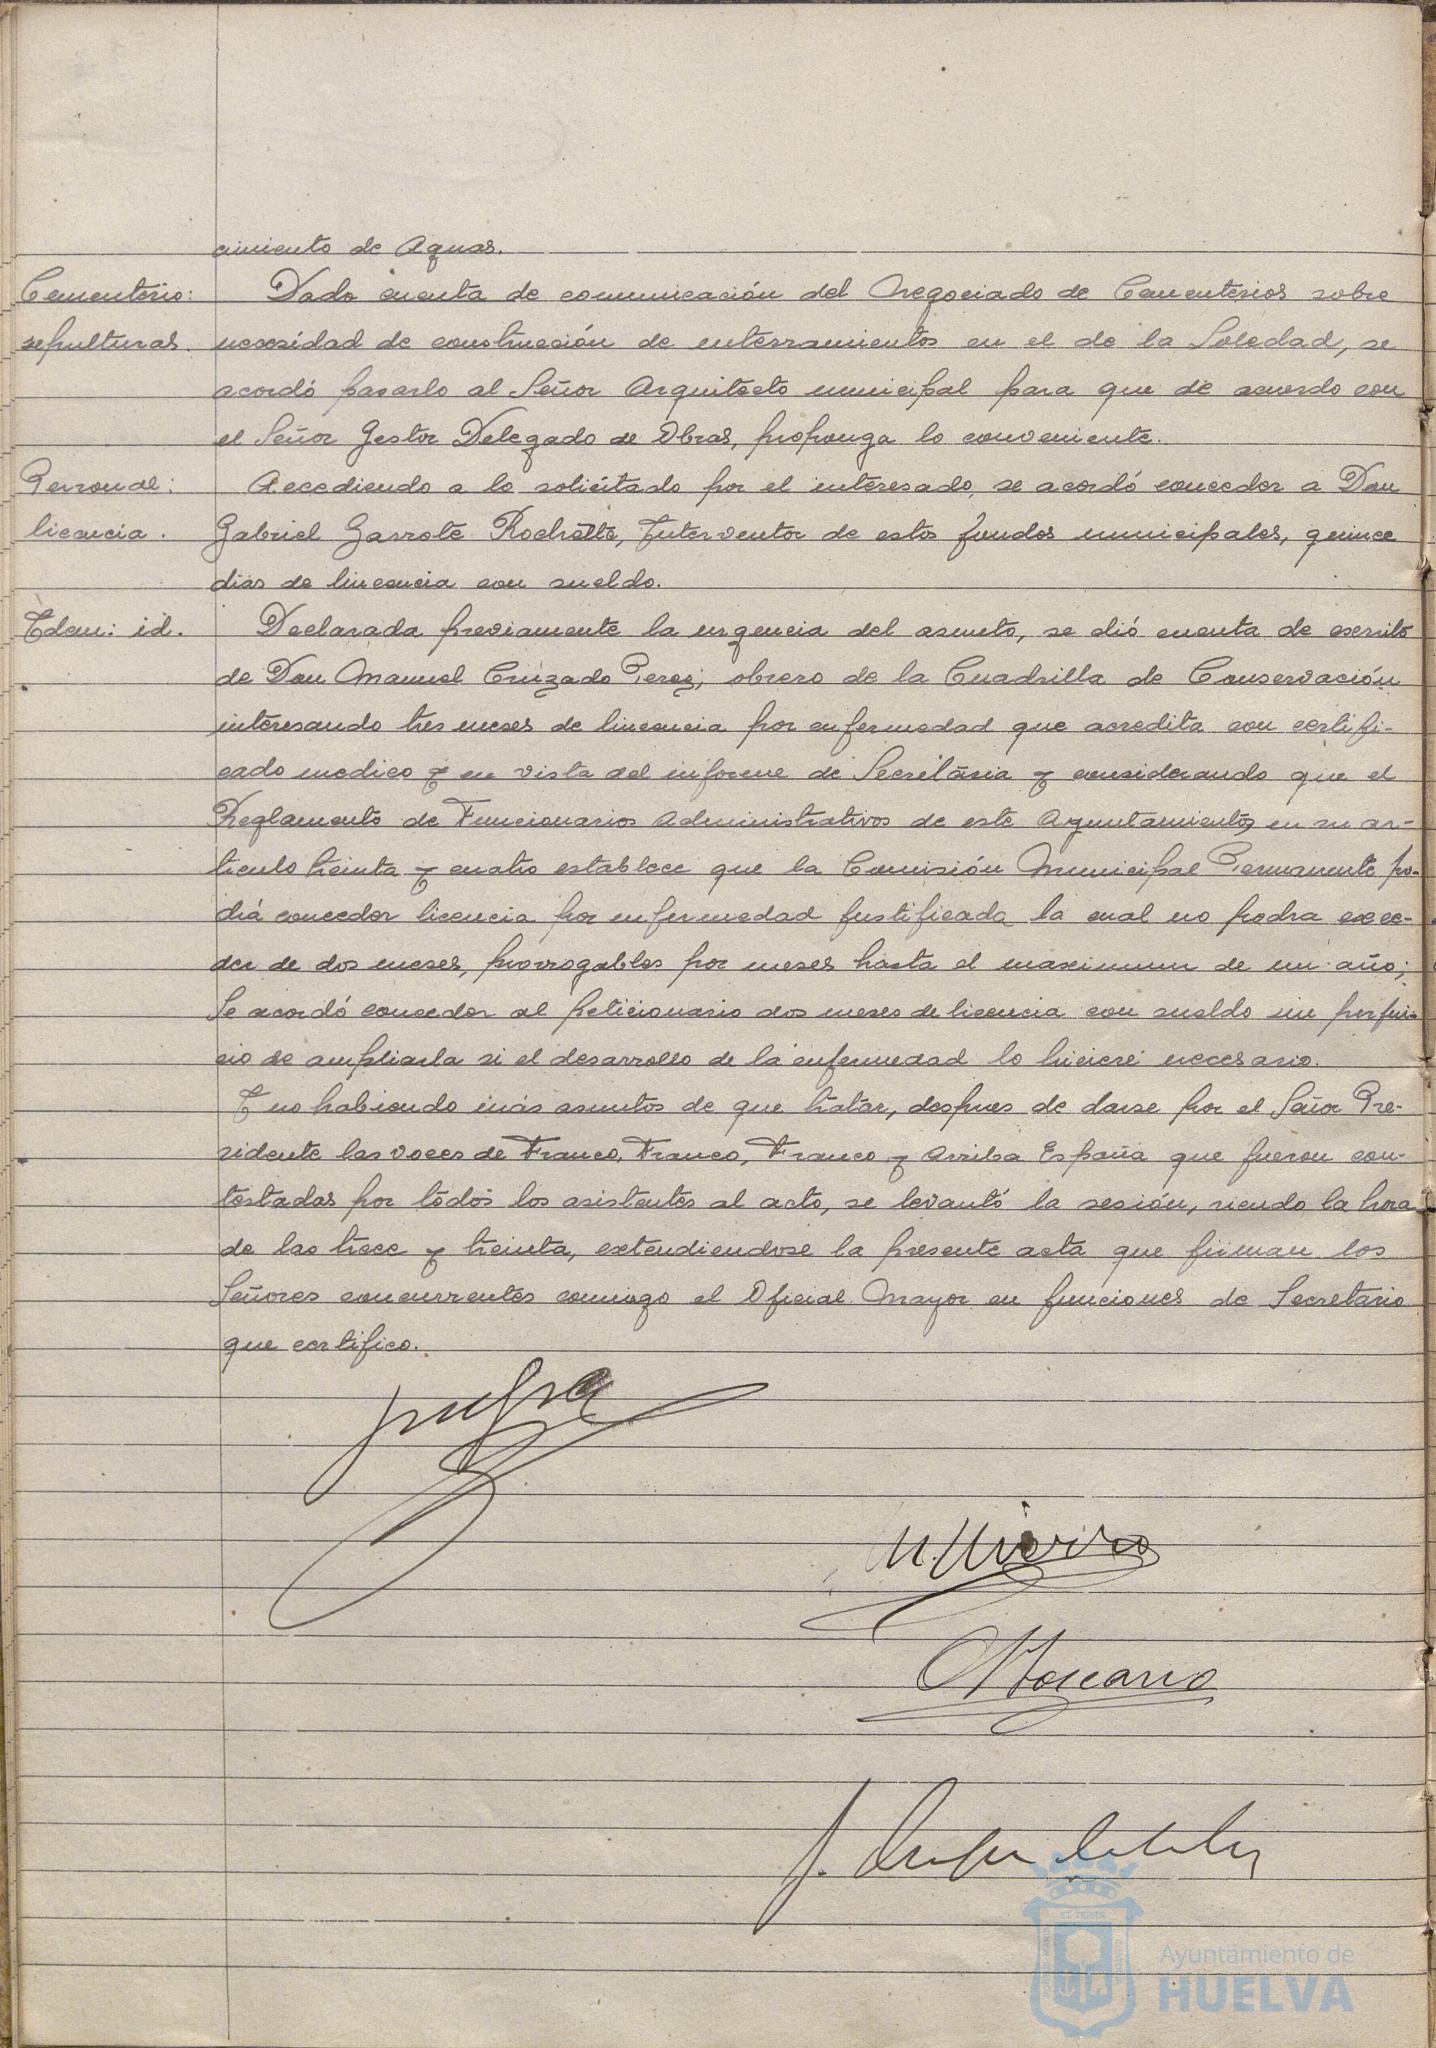 amiento de Aguas.
Cementerio: Dado cuenta de comunicación del Negociado de Cementerios sobre
sepulturas. necesidad de construcción de enterramientos en el de la Soledad, se
acordó pasarlo al Señor Arquitecto municipal para que de acuerdo con
el Señor Gestor Delegado de Obras, proponga lo conveniente.
Personal: Accediendo a lo solicitado por el interesado, se acordó conceder a Don
licencia. Gabriel Garrote Rochette, Interventor de estos fondos municipales, quince
dias de lincencia con sueldo.
Idem: id. Declarada previamente la urgencia del asunto, se dió cuenta de escrito
de Don Manuel Cruzado Perez, obrero de la Cuadrilla de Conservación
interesando tres meses de lincencia por enfermedad que acredita con certifi-
cado medico y en vista del informe de Secretaria y considerando que el
Reglamento de Funcionarios Administrativos de este Ayuntamiento, en su ar-
ticulo treinta y cuatro establece que la Comisión Municipal Permanente po-
drá conceder licencia por enfermedad justificada la cual no podra exce-
der de dos meses, prorrogables por meses hasta el maximum de un año;
Se acordó conceder al peticionario dos meses de licencia con sueldo sin perjui-
cio de ampliarla si el desarrollo de la enfermedad lo hiciere necesario.
Y no habiendo más asuntos de que tratar, despues de darse por el Señor Pre-
sidente las voces de Franco, Franco, Franco y Arriba España que fueron con-
testadas por todos los asistentes al acto, se levantó la sesión, siendo la hora
de las trece y treinta, extendiendose la presente acta que firman los
Señores concurrentes conmigo el Oficial Mayor en funciones de Secretario
que certifico.
Ayuntamiento de
HUELVA